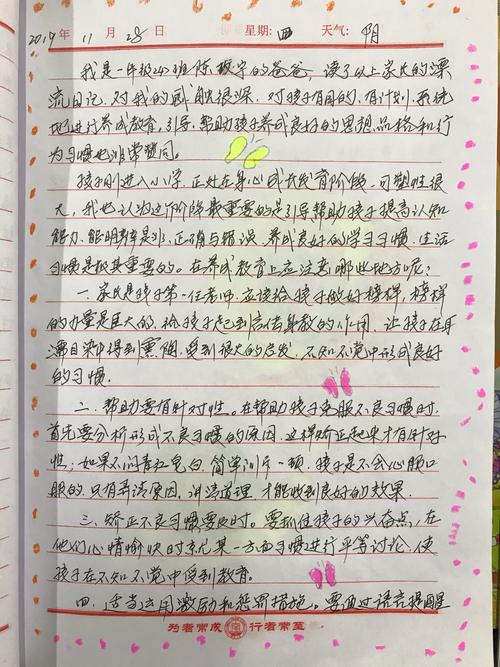 2019年 11月 28日 星期:四 天气:阴
我是一年级24班陈 宇的爸爸,读了以上家长的漂
流日记,对我的感触很深,对孩子有目的、有计划、系统
地进行养成教育,引导、帮助孩子养成良好的思想、品格和行
为习惯也非常赞同。
孩子刚进入小学,正处在身心成长发育阶段,可塑性很
大,我也认为这个阶段最重要的是引导帮助孩子提高认知
能力,能明辨是非、正确与错误,养成良好的学习习惯,生活
习惯是极其重要的。在养成教育上应注意哪些地方呢?
一.家长是孩子第一任老师,应该给孩子做好榜样,榜样
的力量是巨大的,给孩子起到言传身教的作用,让孩子在耳
濡目染中得到熏陶,受到很大的启发,不知不觉中形成良好
的习惯.
二.帮助要有针对性。在帮助孩子克服不良习惯时,
首先要分析形成不良习惯的原因,这样矫正起来才有针对
性;如果不问青红皂白,简单训斥一顿,孩子是不会心服口
服的,只有弄清原因,讲清道理,才能收到良好的效果.
三.矫正不良习惯要及时。要抓住孩子的兴奋点,在
他们心情愉快时就某一方面习惯进行平等讨论,使
孩子在不知不觉中受到教育。
四.适当运用激励和惩罚措施。要通过语言提醒
为者常成 行者常至